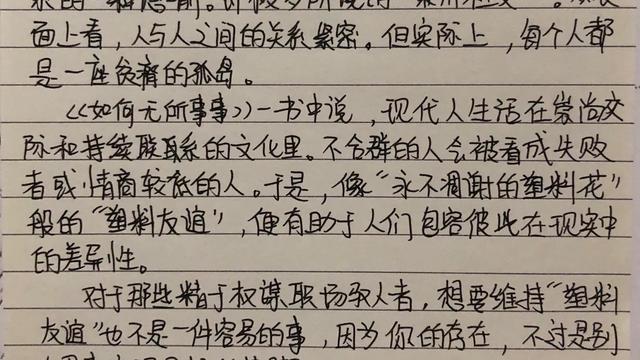 面上看，人与人之间的关系紧密。但实际上，每个人都
是一座贫瘠的孤岛。
《如何无所事事》一书中说，现代人生活在崇尚交
际和持续联系的文化里。不合群的人会被看成失败
者或情商较低的人。于是，像“永不凋谢的塑料花”
般的“塑料友谊”，便有助于人们包容彼此在现实中
的差异性。
对于那些精于权谋职场的人者，想要维持“塑料
友谊”也不是一件容易的事，因为你的存在，不过是别